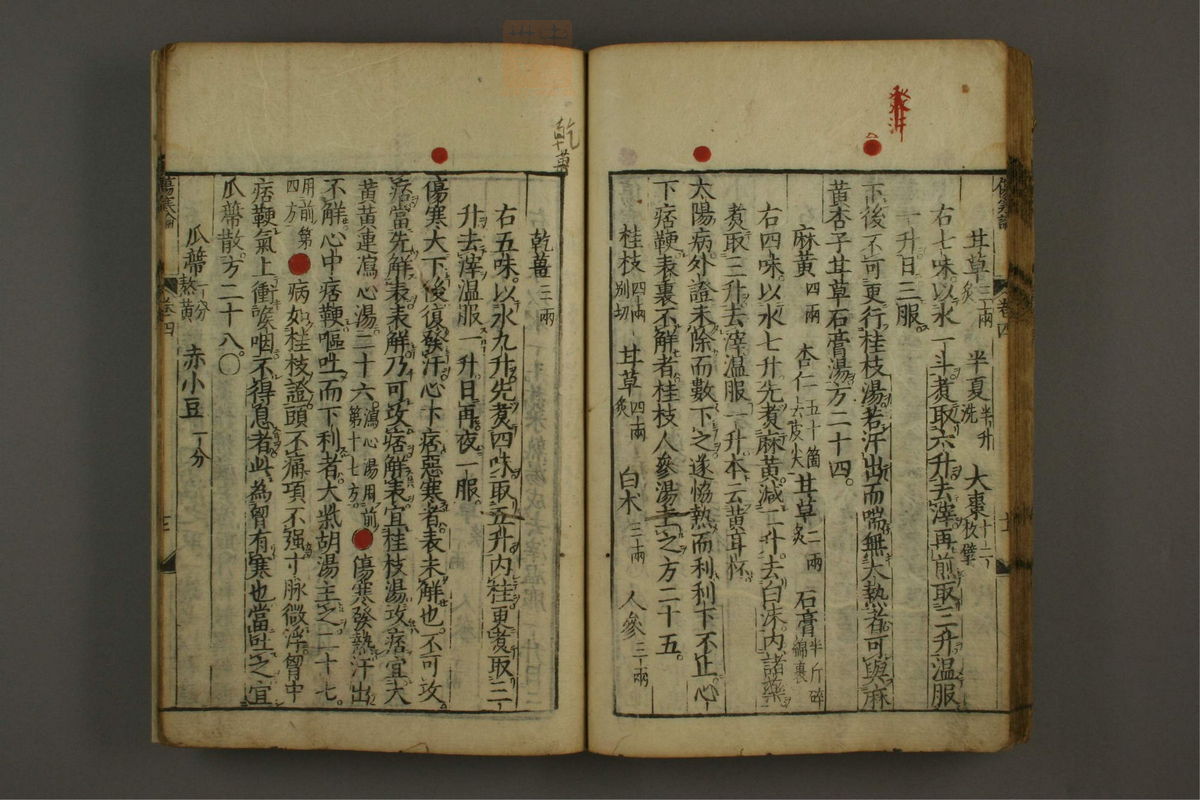 甘草三兩炙 半夏半升洗 大棗十二枚擘
右七味以水一斗煑取六升去滓再煎取三升温服
一升日三服
下後不可更行桂枝湯若汗出而喘無大熱者可與麻
黄杏子甘草石膏湯方二十四
麻黄四兩 杏仁五十箇去皮尖 甘草二兩炙 石膏半斤碎綿裹
右四味以水七升先煑麻黄減二升去白沫内諸藥
煑取三升去滓温服一升本云黄耳杯
太陽病外證未除而數下之遂恊熱而利利下不止心
下痞鞕表裏不解者桂枝人參湯主之方二十五
桂枝四兩別切 甘草四兩炙 白术三兩 人參三兩
傷寒論 卷四
乾薑
乾薑三兩
右五味以水九升先煑四味取五升内桂更煑取三
升去滓温服一升日再夜一服
傷寒大下後復發汗心下痞惡寒者表未解也不可攻
痞當先解表表解乃可攻痞解表宜桂枝湯攻痞宜大
黄黄連瀉心湯二十六瀉心湯用前第十七方 傷寒發熱汗出
不解心中痞鞕嘔吐而下利者大柴胡湯主之二十七
用前第四方 病如桂枝證頭不痛項不强寸脉微浮胷中
痞鞕氣上衝喉咽不得息者此為胷有寒也當吐之宜
瓜蔕散方二十八
瓜蔕一分熬黄 赤小豆一分
傷寒論 卷四